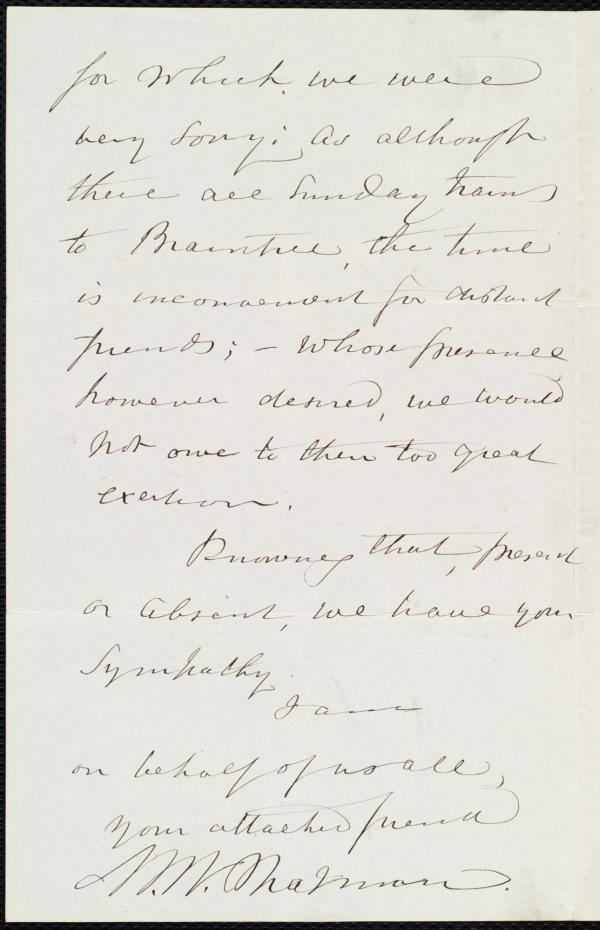 for which we were
very sorry: as although
there are Sunday trains
to Braintree, the time
is inconvenient for distant
friends; – whose presence
however desired, we would
not owe to their too great
exertion.
Knowing that, present
or absent, we have your
Sympathy
I am
on behalf of us all,
your attached friend
M. W. Chapman.